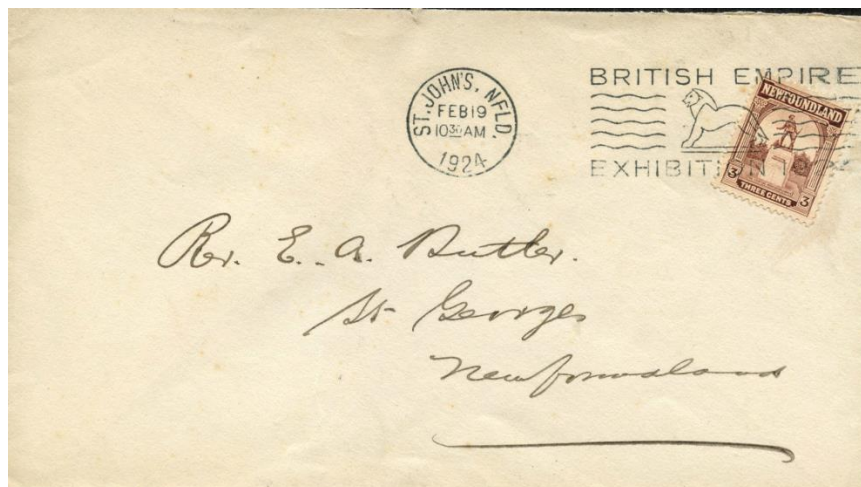 ST. JOHN'S, NFLD.
FEB 19
10 30 AM
1924
BRITISH EMPIRE
EXHIBITION
NEWFOUNDLAND
3 THREE CENTS 3
Rev. E. A. Butler.
St Georges
Newfoundland